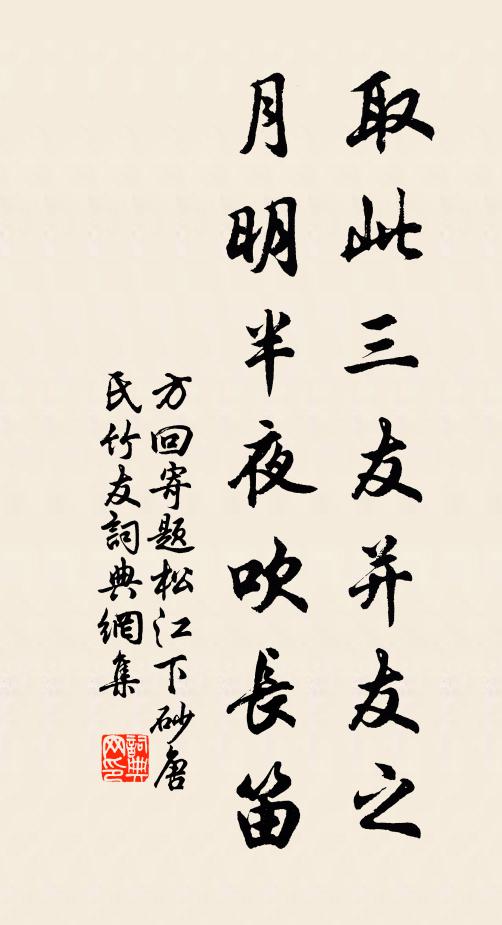 取此三友并友之
月明半夜吹長笛
方回寄題松江下砂唐
氏竹友詞典網集
詞典
网印